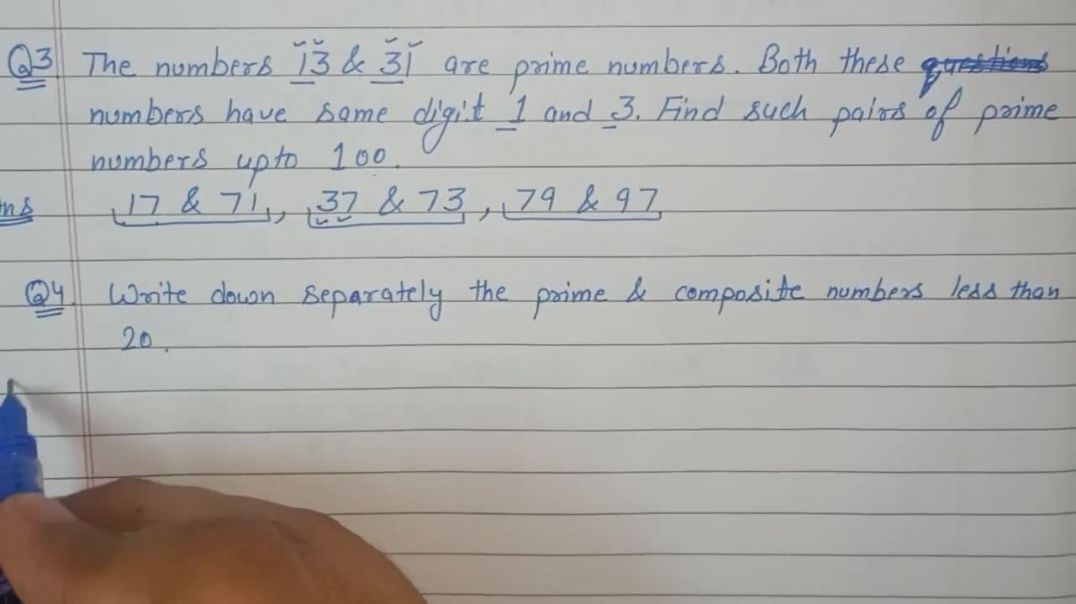 Q3. The numbers 13 & 31 are prime numbers. Both these questions
numbers have same digit 1 and 3. Find such pairs of prime
numbers upto 100.
ns 17 & 71, 37 & 73, 79 & 97
Q4. Write down separately the prime & composite numbers less than
20.